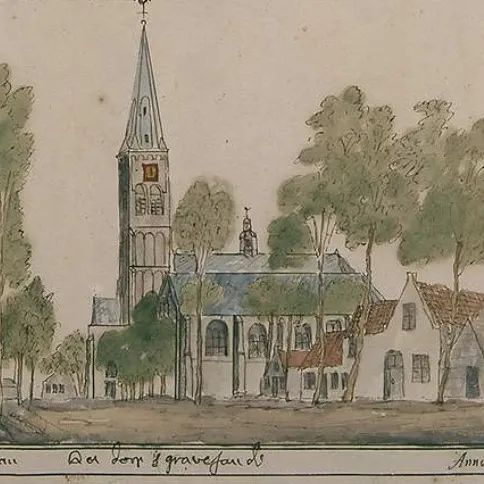 Het dorp 's gravesande Anno